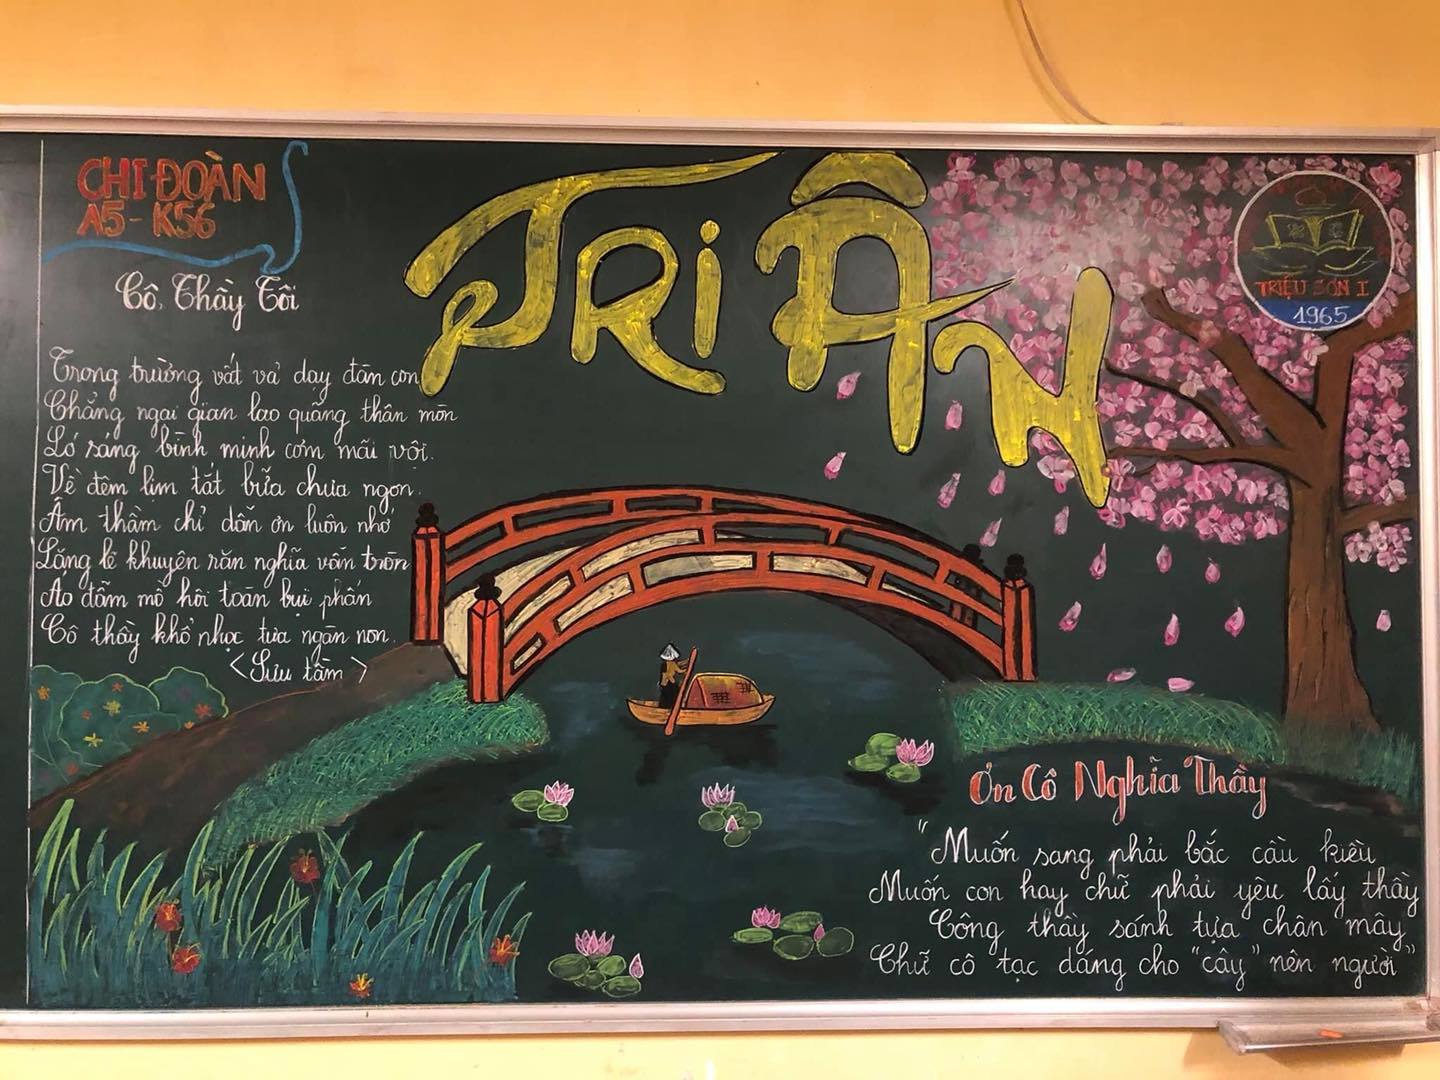 CHI ĐOÀN
A5 - K56
TRI ÂN
TRIỆU SƠN I
1965
Cô, Thầy Tôi
Trong trường vất vả dạy đàn con
Chẳng ngại gian lao quãng thân mòn
Ló sáng bình minh cơm mãi vội.
Về đêm lim tắt bữa chưa ngon.
Âm thầm chỉ dẫn ơn luôn nhớ
Lặng lẽ khuyên răn nghĩa vẫn tròn
Áo đẫm mồ hôi toàn bụi phấn
Cô thầy khổ nhọc tựa ngàn non.
<Sưu tầm>
Ơn Cô Nghĩa Thầy
"Muốn sang phải bắc cầu kiều
Muốn con hay chữ phải yêu lấy thầy
Công thầy sánh tựa chân mây
Chữ cô tạc dáng cho "cây" nên người"